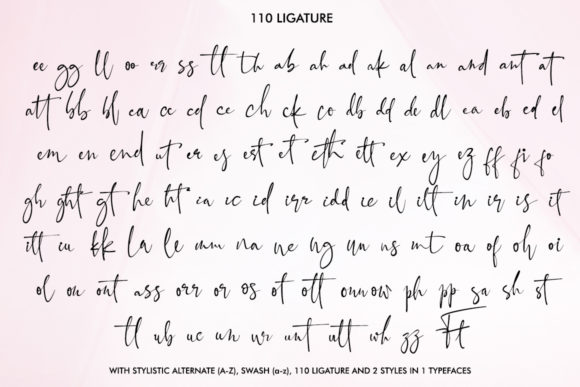 110 LIGATURE
ee gg ll oo rr ss tt th ab ah ad ak al an and ant at
att bb bl ca cc cd ce ch ck co db dd de dl ea eb ed el
em en end ut er es est et eth ett ex ey ez ff fi fo
gh ght gt he ht ia ic id irr idd ie il ilt in ir is it
itt iu kk la le mm na ne ng nn ns mt oa of oh oi
ol on ont ass orr or os ot ott ow ph pp sa sh st
tt ub uc un ur unt utt wh zz Ft
WITH STYLISTIC ALTERNATE (A-Z), SWASH (a-z), 110 LIGATURE AND 2 STYLES IN 1 TYPEFACES